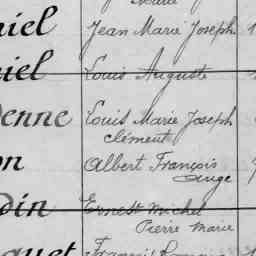 Marie
niel Jean Marie Joseph 1
niel Louis Auguste
denne Louis Marie Joseph
Clément
on Albert François
Ange
din Ernest Michel
Pierre Marie
quet